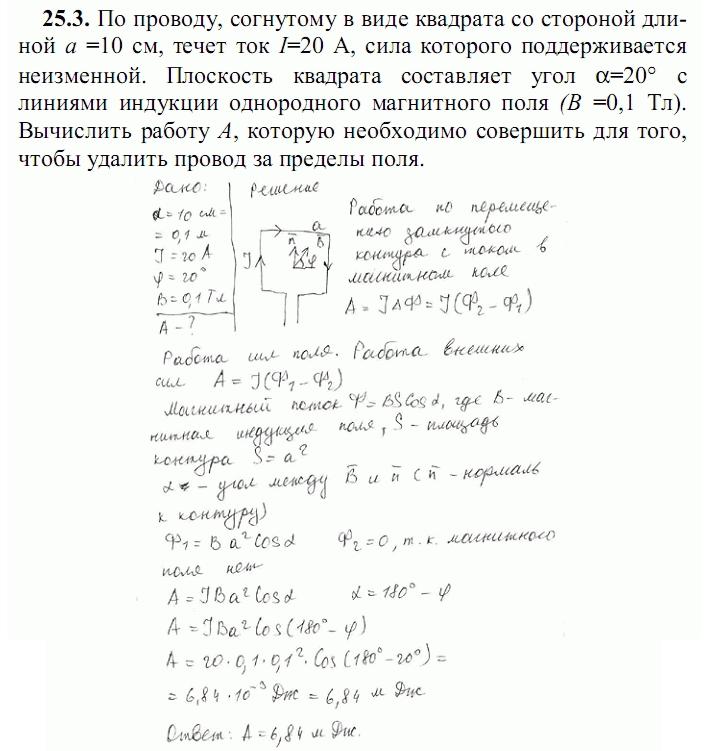 25.3. По проводу, согнутому в виде квадрата со стороной дли-
ной a =10 см, течет ток I=20 А, сила которого поддерживается
неизменной. Плоскость квадрата составляет угол α=20° с
линиями индукции однородного магнитного поля (B =0,1 Тл).
Вычислить работу A, которую необходимо совершить для того,
чтобы удалить провод за пределы поля.
Дано:
α = 10 см =
= 0,1 м
J = 20 А
φ = 20°
B = 0,1 Тл
A - ?
Решение
a
n̄ B̄
J
φ
Работа по перемеще-
нию замкнутого
контура с током в
магнитном поле
A = JΔФ = J(Ф₂ - Ф₁)
Работа сил поля. Работа внешних
сил A = J(Ф₁ - Ф₂)
Магнитный поток Ф = BS cos α, где B - маг-
нитная индукция поля, S - площадь
контура S = a²
α - угол между B̄ и n̄ (n̄ - нормаль
к контуру)
Ф₁ = B a² cos α Ф₂ = 0, т.к. магнитного
поля нет
A = JBa² cos α α = 180° - φ
A = JBa² cos (180° - φ)
A = 20 · 0,1 · 0,1² · cos (180° - 20°) =
= 6,84 · 10⁻³ Дж = 6,84 м Дж
Ответ: A = 6,84 м Дж.